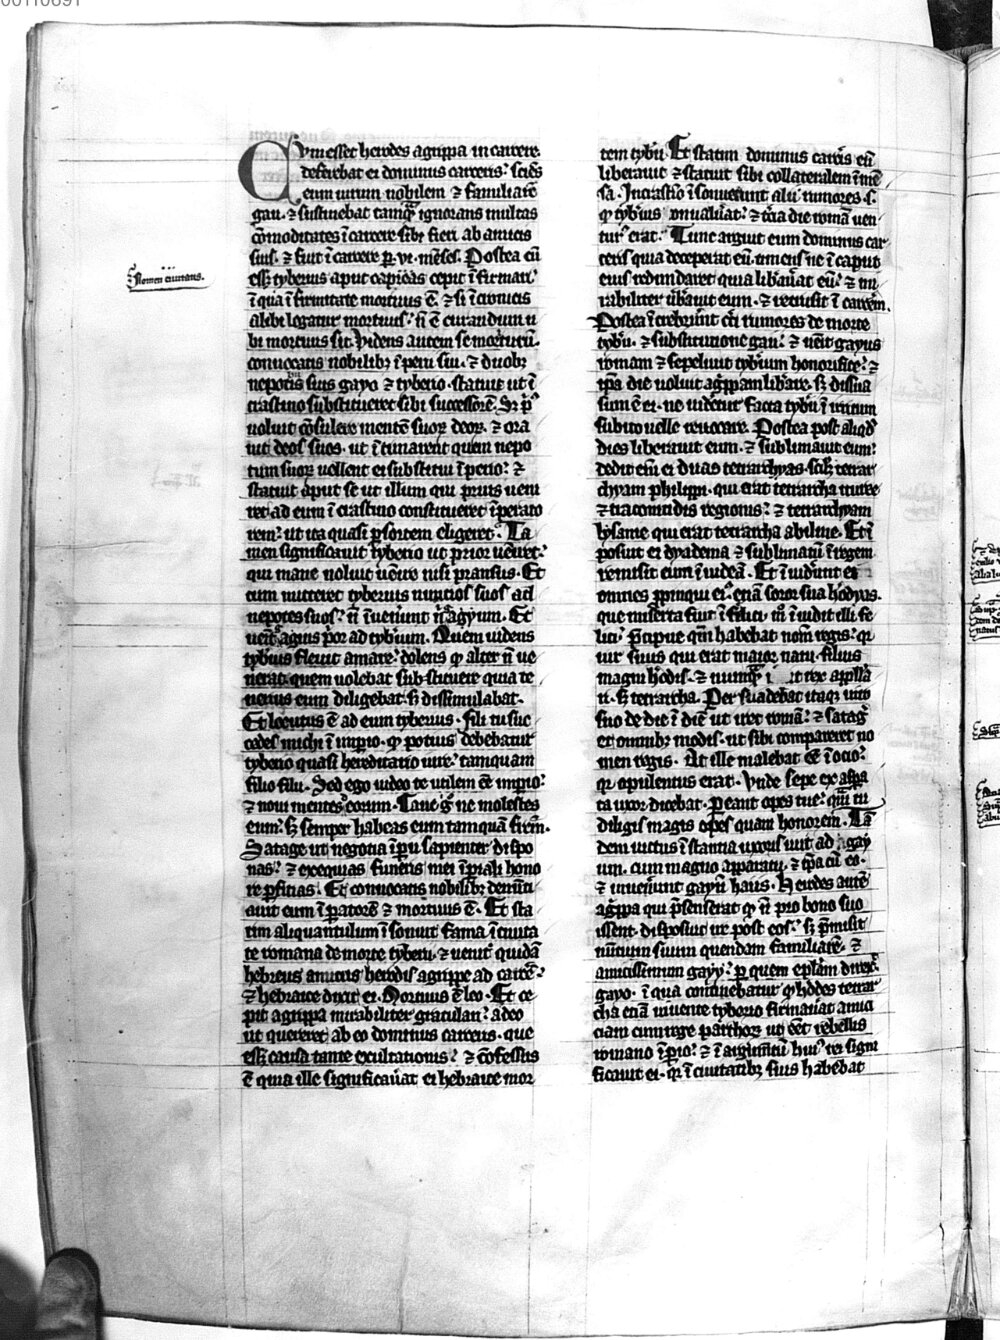 Cum esset herodes agrippa in carcere.
deferebat ei dominus carceris. sciēs
eum uirum nobilem ⁊ familiarē
gaii. ⁊ sustinebat tamq̄ ignorans multas
cōmoditates ī carcere sibi fieri ab amicis
suis. ⁊ fuit ī carcere ꝑ. vi. mēses. Postea cū
essꝫ tyberius aput capreas cepit īfirmari.
ī qua īfirmitate mortuus ē. ⁊ si ī cronicis
Nomen ciuitatis.
alibi legatur mortuus. nō ē curandum u
bi mortuus sit. Videns autem se moriturū.
conuocatis nobilibꝫ īperii sui. ⁊ duobꝫ
nepotibus suis gayo ⁊ tyberio. statuit ut ī
crastino substitueret sibi successorē. Sꝫ pͥus
uoluit cōsulere mentē suoꝝ deoꝝ. ⁊ ora
uit deos suos. ut ītimarent quem nepo
tum suoꝝ uellent ei substitui ī perio. ⁊
statuit aput se ut illum qui prius ueni
ret ad eum ī crastino constitueret īperato
rem. ut ita quasi ꝑ sortem eligeret. Ta
men significauit tyberio ut prior ueniret.
qui mane noluit uenire nisi pransus. Et
cum mitteret tyberius nuncios suos ad
nepotes suos. nō īuenerunt nͥ gayum. Et
uenit gaius prior ad tybͥium. Quem uidens
tyberius fleuit amare. dolens ꝙ alter nō ue
nerat. quem uolebat substituere quia te
nerius eum diligebat. sꝫ dissimulabat.
Et locutus ē ad eum tyberius. Fili tu suc
cedes michi ī imperio. ꝙ potius debebatur
tyberio quasi hereditario iure. tamquam
filio filii. Sed ego uideo te utilem ēē imperio.
⁊ noui mentes eorum. Caue gͦ ne molestes
eum. sꝫ semper habeas eum tamquā frēm.
Satage ut negotia īperii sapienter dispo
nas. ⁊ exequias funeris mei īperiali hono
re ꝑficias. Et conuocatis nobilibꝫ denūti
auit eum īperatorē ⁊ mortuus ē. Et sta
tim aliquantulum īsonuit fama ī ciuita
te romana de morte tyberii. ⁊ uenit quidā
hebreus amicus herodis agrippe ad carcerē.
⁊ hebraice dixit ei. Mortuus ē leo. Et ce
pit agrippa mirabiliter gratulari. adeo
ut quereret ab eo dominus carceris. que
essꝫ causa tante exultationis. ⁊ cōfessus
ē quia ille significauerat ei hebraice mor
tem tyberii. Et statim dominus carceris eū
liberauit ⁊ statuit sibi collateralem ī mē
sa. In crastino īsonuerunt alii rumores. s.
ꝙ tyberius conualuerat. ⁊ tercia die romā uen
turus erat. Tunc arguit eum dominus car
ceris quia deceperat eū. timens ne ī caput
eius redundaret quia liberauerat eū. ⁊ mi
rabiliter uerberauit eum. ⁊ retrusit ī carcerem.
Postea īcrebuerunt certi rumores de morte
tyberii. ⁊ substitutione gaii. ⁊ uenit gayus
romam ⁊ sepeliuit tyberium honorifice. ⁊
ipsa die uoluit agrippam liberare. sꝫ dissua
sum ē ei. ne uideretur facta tyberii ī irritum
subito uelle reuocare. Postea post aliquod
dies liberauit eum. ⁊ sublimauit eum.
dedit eni ei duas tetrarchyas. scilicet tetrar
chyam philippi. qui erat tetrarcha ituree
⁊ traconitidis regionis. ⁊ tetrarchyam
lysanie qui erat tetrarcha abiline. Et ī
posuit ei dyadema ⁊ sublimatū ī regem
remisit eum ī iudeā. Et īuiderunt ei
omnes propinqui ei. etiā soror sua herodyas.
que misera fuit ī filia. īuidit illi fe
lici. Precipue quoniam habebat nomen regis. quia
uir suus qui erat maior natu. filius
magni herodis. ⁊ numqͣ rex appella
tus. sꝫ tetrarcha. Persuadebat itaque uiro
suo de die ī diē ut iret romā. ⁊ satageret
et omnibꝫ modis. ut sibi compararet no
men regis. At ille malebat ēē ī ocio.
quia opulentus erat. Vnde sepe exaspera
ta uxor dicebat. Pereant opes tue. quoniam tu
diligis magis opes quam honorem. Tā
dem uictus īstantia uxoris iuit ad gay
um. cum magno apparatu. ⁊ ipsa cū eo.
⁊ inuenerunt gayū baiis. Herodes autē
agrippa qui presenserat ꝙ nō pro bono suo
issent. disposuit ire post eos. sꝫ premisit
nuncium suum quendam familiarē. ⁊
amicissimum gayy. per quem epistolam direxit
gayo. ī qua continebatur ꝙ herodes tetrar
cha etiā uiuente tyberio firmauerat amici
ciam cum rege parthoꝝ ut ēēt rebellis
romano īperio. ⁊ ī argumentū huius rei signi
ficauit ei. quia ī ciuitatibꝫ suis habebat